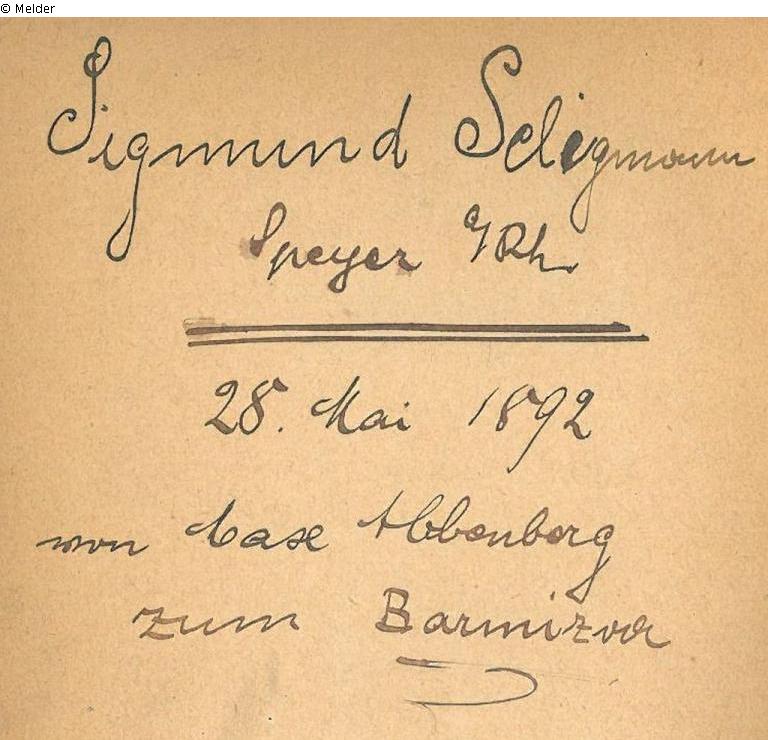 © Melder
Sigmund Seligmann
Speyer a/Rh.
28. Mai 1892
von Base Abbenberg
zum Barmizva